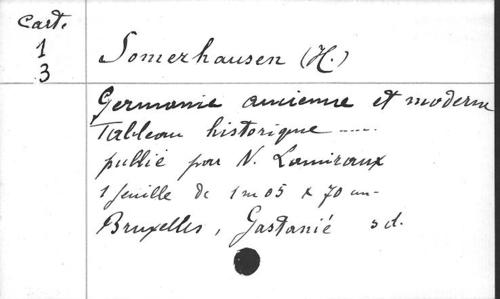 Cart.
1
3
Somerhausen (H.)
Germanie ancienne et moderne
Tableau historique .....
publié par N. Lamiraux
1 feuille de 1m05 x 70 cm
Bruxelles, Gastanié s d.